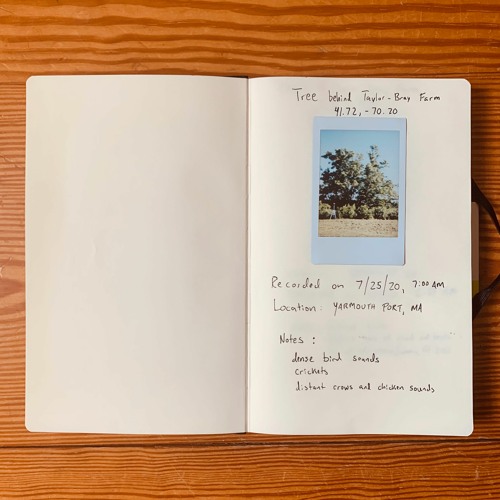 Tree behind Taylor-Bray Farm
41.72, -70.20
Recorded on 7/25/20, 7:00 AM
Location: YARMOUTH PORT, MA
Notes:
dense bird sounds
crickets
distant crows and chicken sounds